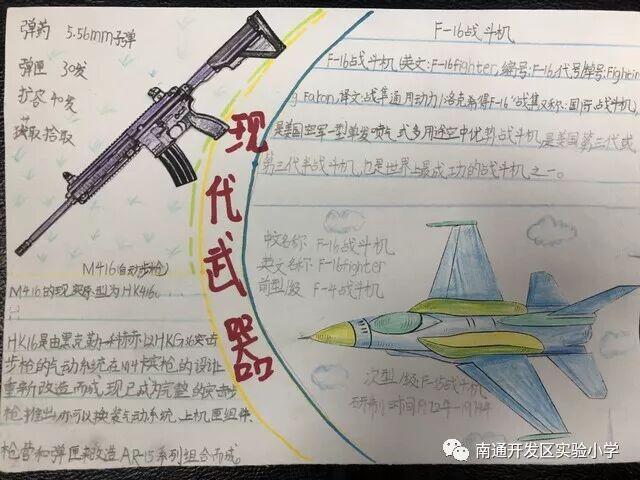 弹药 5.56mm子弹
弹匣 30发
扩容40发
获取 拾取
M416(自动步枪)
M416的现实原型为HK416。
HK16是由黑克勒-科赫以HKG36突击
步枪的气动系统在M4卡宾枪的设计
重新改造而成,现已成为完整的突击步
枪推出,亦可以换装气动系统、上机匣组件、
枪管和弹匣来改造AR-15系列组合而成。
现代武器
F-16战斗机
F-16战斗机(英文:F-16fighter,编号:F-16,代号/绰号:Fightin
g Falcon,译文:战隼
是美国空军一型单发喷气式多用途空中优势战斗机,是美国第三代或
第三代半战斗机,也是世界上最成功的战斗机之一。
中文名称 F-16战斗机
英文名称 F-16fighter
前型/级 F-4战斗机
次型/级 F-35战斗机
研制时间1972年-1974年
南通开发区实验小学